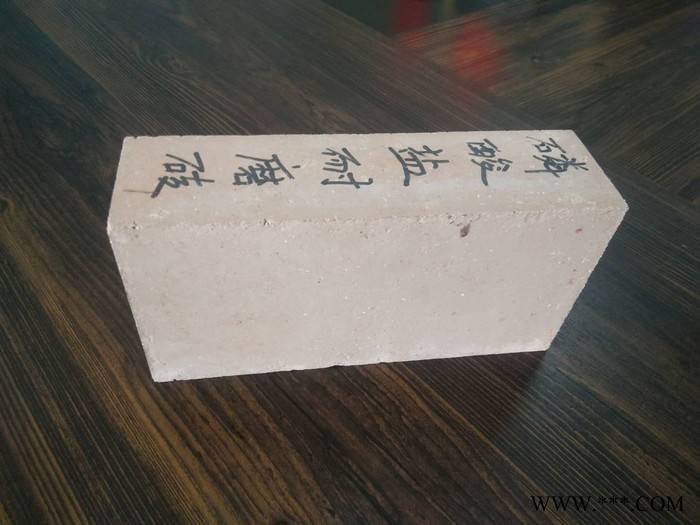 磷酸盐耐磨砖
WWW.***.COM